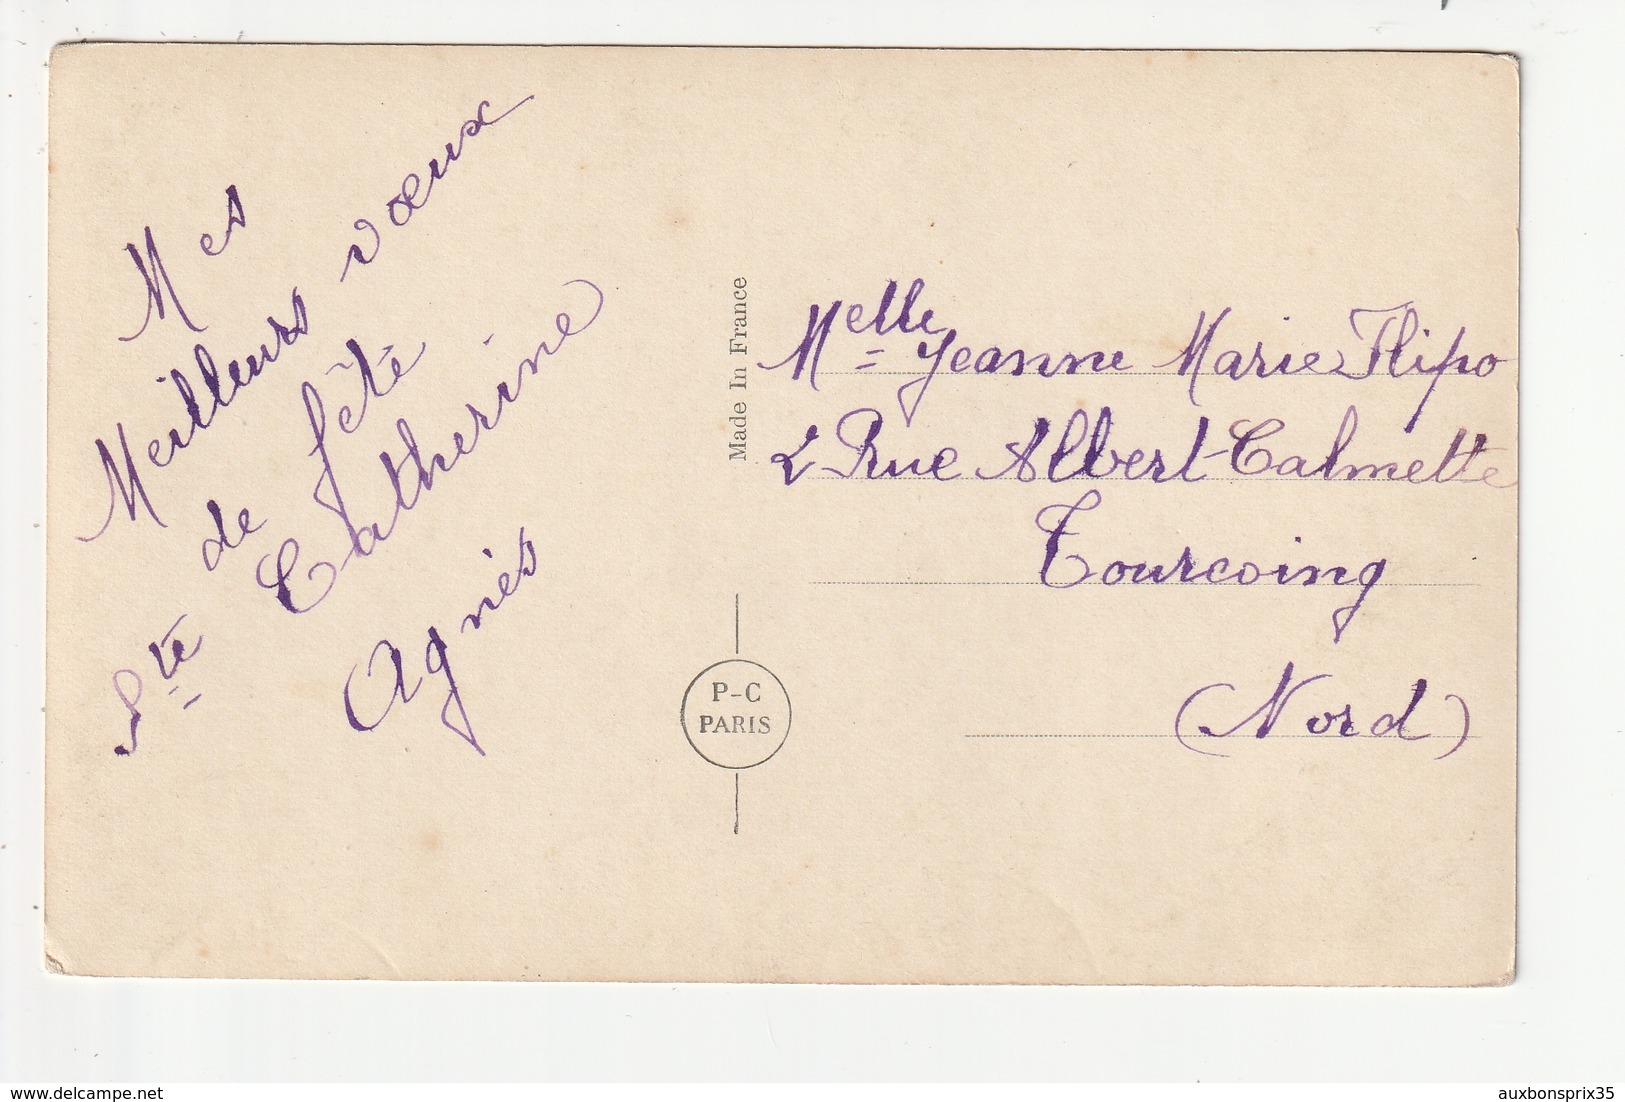 Mes
Meilleurs vœux
de fêté
Ste Catherine
Agnès
Made In France
P-C
PARIS
Melle Jeanne Marie Flipo
2 Rue Albert-Calmette
Tourcoing
(Nord)
delcampe.net
auxbonsprix35